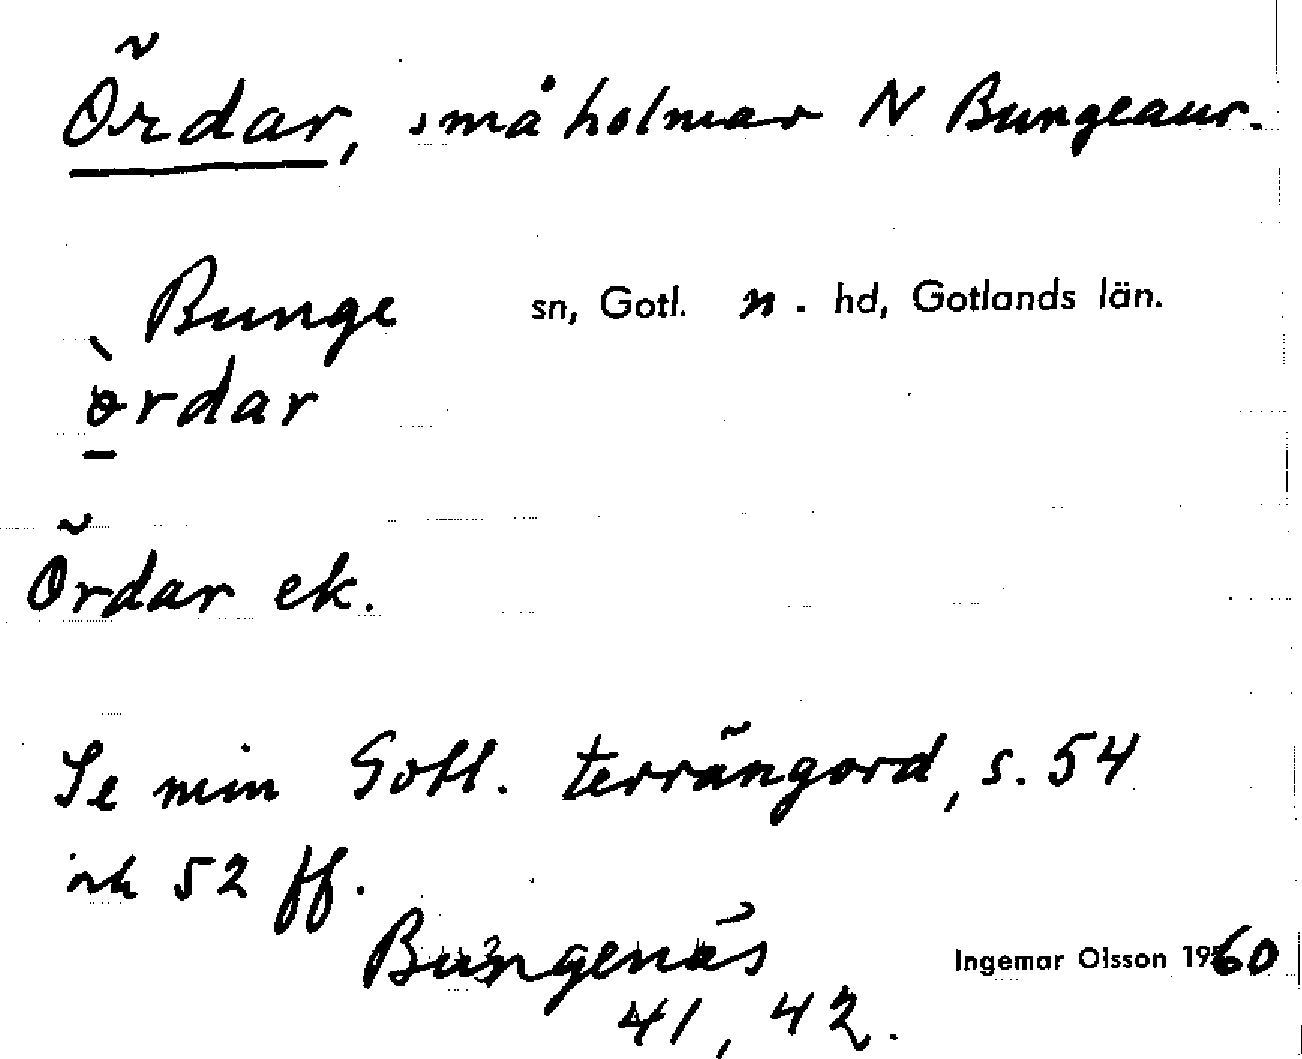 Ördar, småholmar N Bungeaur.
Bunge sn, Gotl. n. hd, Gotlands län.
ördar
Ördar ek.
Se min Gotl. terrängord, s. 54
och 52 ff.
Bungenäs
41, 42.
Ingemar Olsson 1960